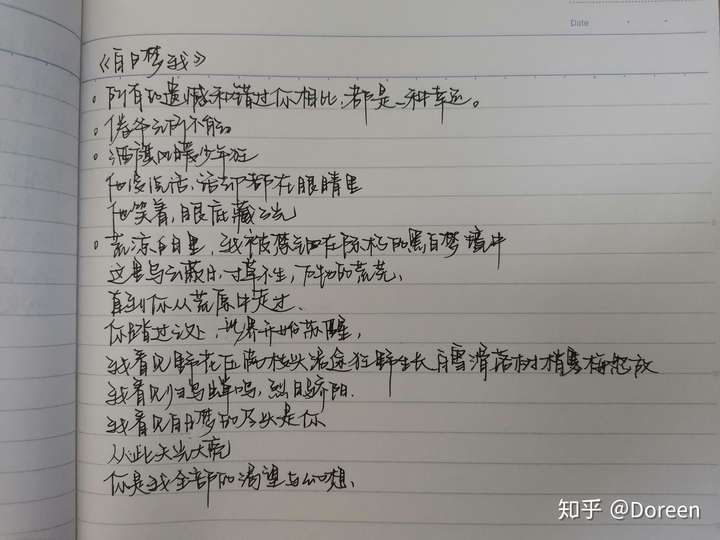 Date
《白日梦我》
。所有的遗憾和错过你相比,都是一种幸运。
。倦爷无所不能
。酒旗风暖少年狂
他没说话,话却都在眼睛里
他笑着,眼底藏云光
。荒凉白日里,我被禁锢在陈朽的黑白梦境中
这里乌云蔽日,寸草不生,万物的荒芜、
直到你从荒原中走过.
你踏过之处,世界开始苏醒,
我看见野花压满枝头 沿途狂野生长 白雪滑落树梢寒梅怒放
我看见归鸟蝉鸣,烈日骄阳.
我看见白日梦的尽头是你
从此天光大亮
你是我全部的渴望与幻想、
知乎 @Doreen